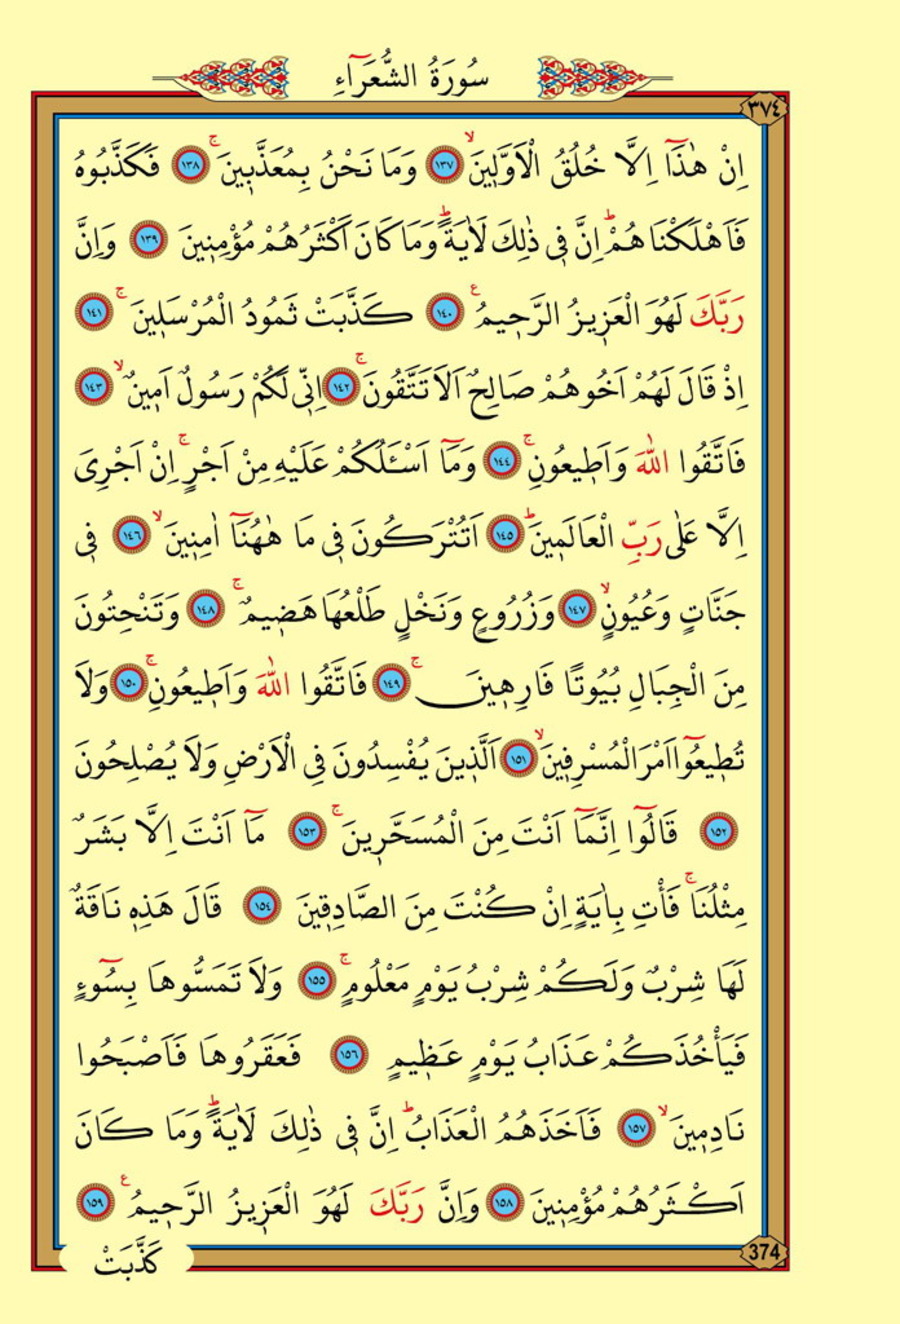 سُورَةُ الشُّعَرَٓاءِ
٣٧٤
اِنْ هٰذَٓا اِلَّا خُلُقُ الْاَوَّل۪ينَۙ ١٣٧ وَمَا نَحْنُ بِمُعَذَّب۪ينَۚ ١٣٨ فَكَذَّبُوهُ
فَاَهْلَكْنَاهُمْۜ اِنَّ ف۪ي ذٰلِكَ لَاٰيَةًۜ وَمَا كَانَ اَكْثَرُهُمْ مُؤْمِن۪ينَ ١٣٩ وَاِنَّ
رَبَّكَ لَهُوَ الْعَز۪يزُ الرَّح۪يمُ۟ ١٤٠ كَذَّبَتْ ثَمُودُ الْمُرْسَل۪ينَۚ ١٤١
اِذْ قَالَ لَهُمْ اَخُوهُمْ صَالِحٌ اَلَا تَتَّقُونَۚ ١٤٢ اِنّ۪ي لَكُمْ رَسُولٌ اَم۪ينٌۙ ١٤٣
فَاتَّقُوا اللّٰهَ وَاَط۪يعُونِۚ ١٤٤ وَمَٓا اَسْـَٔلُكُمْ عَلَيْهِ مِنْ اَجْرٍۚ اِنْ اَجْرِيَ
اِلَّا عَلٰى رَبِّ الْعَالَم۪ينَۜ ١٤٥ اَتُتْرَكُونَ ف۪ي مَا هٰهُنَٓا اٰمِن۪ينَۙ ١٤٦ ف۪ي
جَنَّاتٍ وَعُيُونٍۙ ١٤٧ وَزُرُوعٍ وَنَخْلٍ طَلْعُهَا هَض۪يمٌۚ ١٤٨ وَتَنْحِتُونَ
مِنَ الْجِبَالِ بُيُوتًا فَارِه۪ينَۚ ١٤٩ فَاتَّقُوا اللّٰهَ وَاَط۪يعُونِۚ ١٥٠ وَلَا
تُط۪يعُٓوا اَمْرَ الْمُسْرِف۪ينَۙ ١٥١ اَلَّذ۪ينَ يُفْسِدُونَ فِي الْاَرْضِ وَلَا يُصْلِحُونَ
١٥٢ قَالُٓوا اِنَّمَٓا اَنْتَ مِنَ الْمُسَحَّر۪ينَۚ ١٥٣ مَٓا اَنْتَ اِلَّا بَشَرٌ
مِثْلُنَاۚ فَأْتِ بِاٰيَةٍ اِنْ كُنْتَ مِنَ الصَّادِق۪ينَ ١٥٤ قَالَ هٰذِه۪ نَاقَةٌ
لَهَا شِرْبٌ وَلَكُمْ شِرْبُ يَوْمٍ مَعْلُومٍۚ ١٥٥ وَلَا تَمَسُّوهَا بِسُٓوءٍ
فَيَأْخُذَكُمْ عَذَابُ يَوْمٍ عَظ۪يمٍ ١٥٦ فَعَقَرُوهَا فَاَصْبَحُوا
نَادِم۪ينَۙ ١٥٧ فَاَخَذَهُمُ الْعَذَابُۜ اِنَّ ف۪ي ذٰلِكَ لَاٰيَةًۜ وَمَا كَانَ
اَكْثَرُهُمْ مُؤْمِن۪ينَ ١٥٨ وَاِنَّ رَبَّكَ لَهُوَ الْعَز۪يزُ الرَّح۪يمُ۟ ١٥٩
374
كَذَّبَتْ